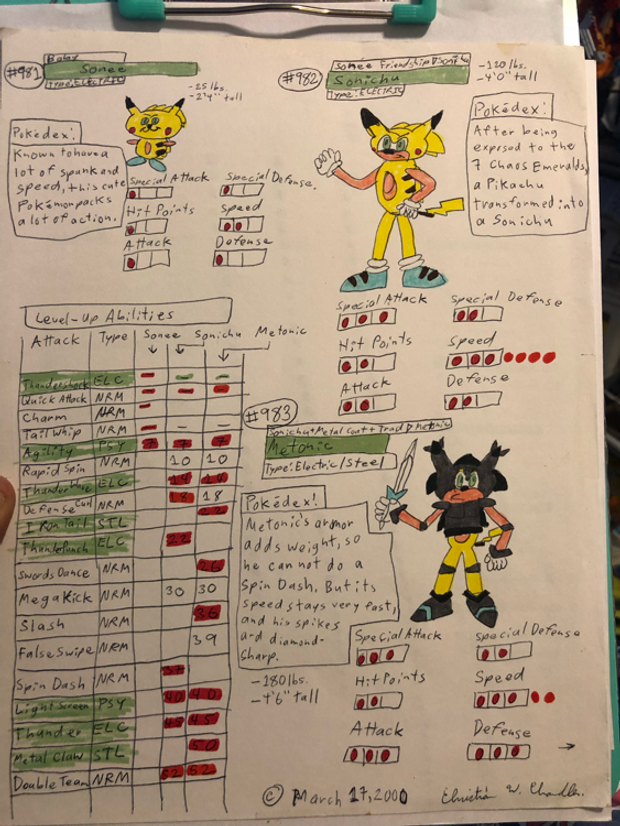 Baby
#981
Sonee
Type: ELECTRIC
-25 lbs.
-2'4" tall
Pokédex:
Known to have a
lot of spunk and
speed, this cute
Pokémon packs
a lot of action.
Special Attack
Special Defense.
Hit Points
Speed
Attack
Defense
Sonee Friendship▷Sonichu
#982
Sonichu
Type: ELECTRIC
-120 lbs.
-4'0" tall
Pokédex:
After being
exposed to the
7 Chaos Emeralds,
a Pikachu
transformed into
a Sonichu
Special Attack
Special Defense
Hit Points
Speed
Attack
Defense
Level-Up Abilities
Attack Type Sonee Sonichu Metonic
Thundershock ELC — — —
Quick Attack NRM — — —
Charm NRM —
Tail Whip NRM — — —
Agility PSY 7 7 7
Rapid Spin NRM 10 10
Thunder Wave ELC 14 14
Defense Curl NRM 18 18
Iron Tail STL 22
Thunderpunch ELC 22
Swords Dance NRM 26
Mega Kick NRM 30 30
Slash NRM 36
False Swipe NRM 39
Spin Dash NRM 37
Light Screen PSY 40 40
Thunder ELC 45 45
Metal Claw STL 50
Double Team NRM 52 52
#983
Sonichu+Metal Coat+Trad▷Metonic
Metonic
Type: Electric/Steel
Pokédex:
Metonic's armor
adds weight, so
he cannot do a
Spin Dash. But its
speed stays very fast,
and his spikes
are diamond-
sharp.
-180 lbs.
-4'6" tall
Special Attack
Special Defense
Hit Points
Speed
Attack
Defense
© March 17, 2000
Christian W. Chandler.